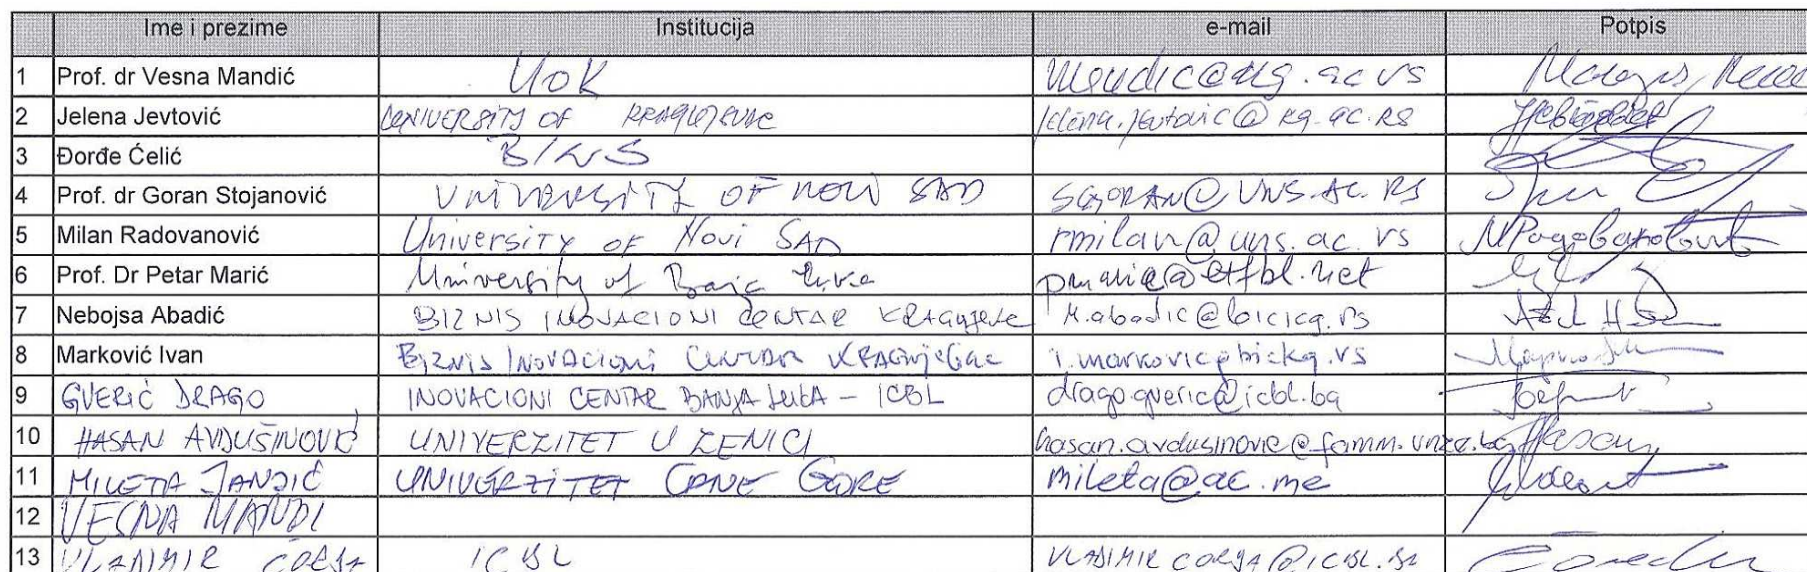 Ime i prezime Institucija e-mail Potpis
1 Prof. dr Vesna Mandić UoK mandic@kg.ac.rs
2 Jelena Jevtović UNIVERSITY OF KRAGUJEVAC jelena.jevtovic@kg.ac.rs
3 Đorđe Ćelić BINS
4 Prof. dr Goran Stojanović UNIVERSITY OF NOVI SAD SGORAN@UNS.AC.RS
5 Milan Radovanović University of Novi SAD rmilan@uns.ac.rs
6 Prof. Dr Petar Marić University of Banja Luka pmaric@etfbl.net
7 Nebojsa Abadić BIZNIS INOVACIONI CENTAR KRAGUJEVAC n.abadic@bickg.rs
8 Marković Ivan BIZNIS INOVACIONI CENTAR KRAGUJEVAC i.markovic@bickg.rs
9 GVERIĆ DRAGO INOVACIONI CENTAR BANJA LUKA - ICBL drago.gveric@icbl.ba
10 HASAN AVDUŠINOVIĆ UNIVERZITET U ZENICI hasan.avdusinovic@famm.unze.ba Hasan
11 MILETA JANJIĆ UNIVERZITET CRNE GORE mileta@ac.me
12 VESNA MANDI
13 VLADIMIR ICBL